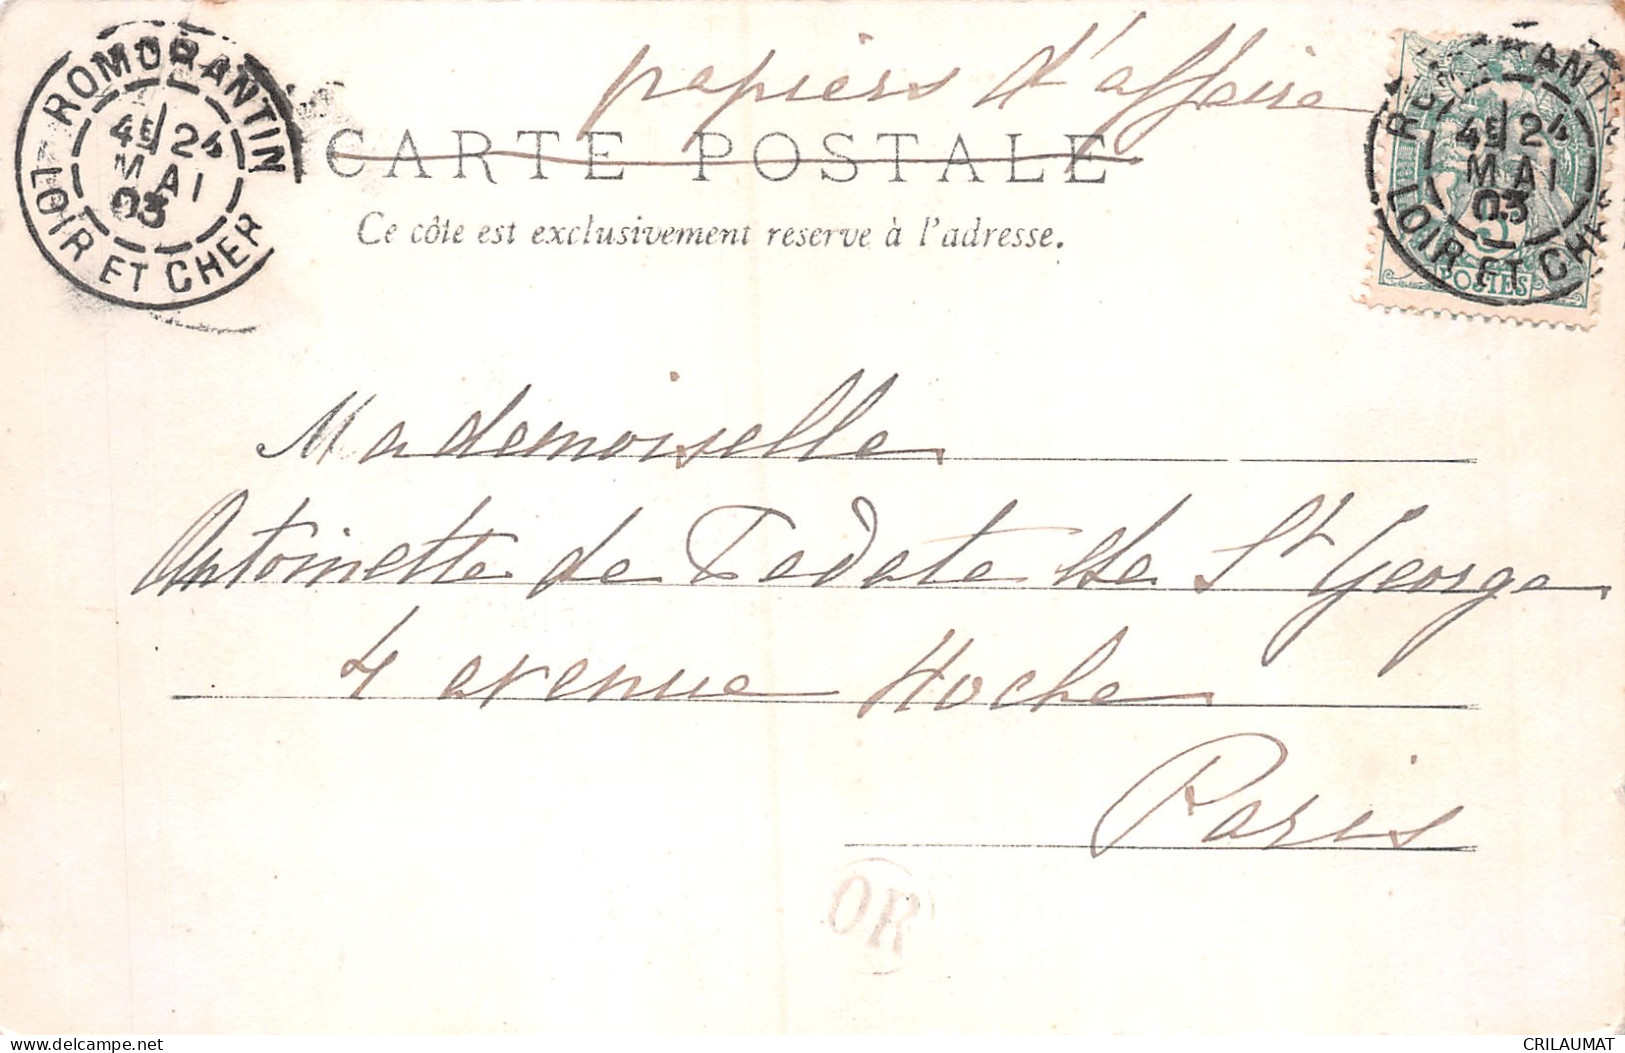 papiers d'affaire
CARTE POSTALE
Ce côte est exclusivement reserve à l'adresse.
ROMORANTIN
4E 24
MAI
03
LOIR ET CHER
ROMORANTIN
4E 24
MAI
03
LOIR ET CHER
5
POSTES
Mademoiselle
Antoinette de Fedate de St George
4 avenue Hoche
Paris
OR
CRILAUMAT